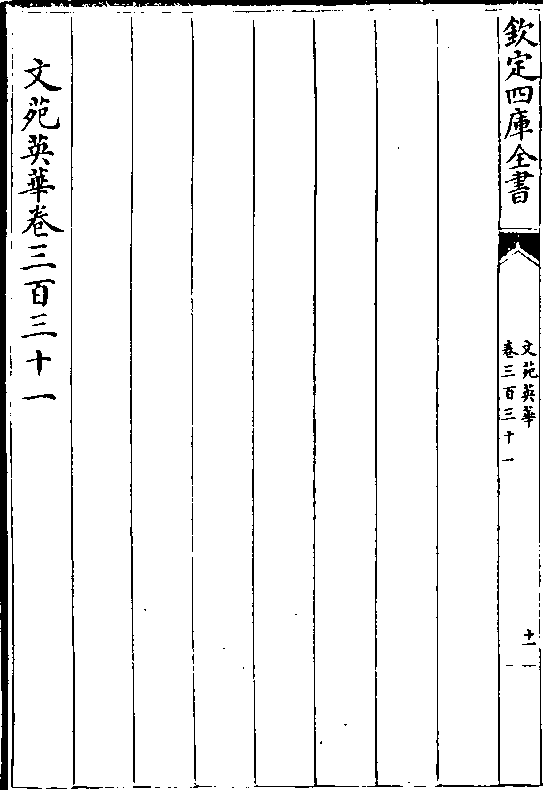 欽定四庫全書
文苑英華
卷三百三十一
十一
文苑英華卷三百三十一